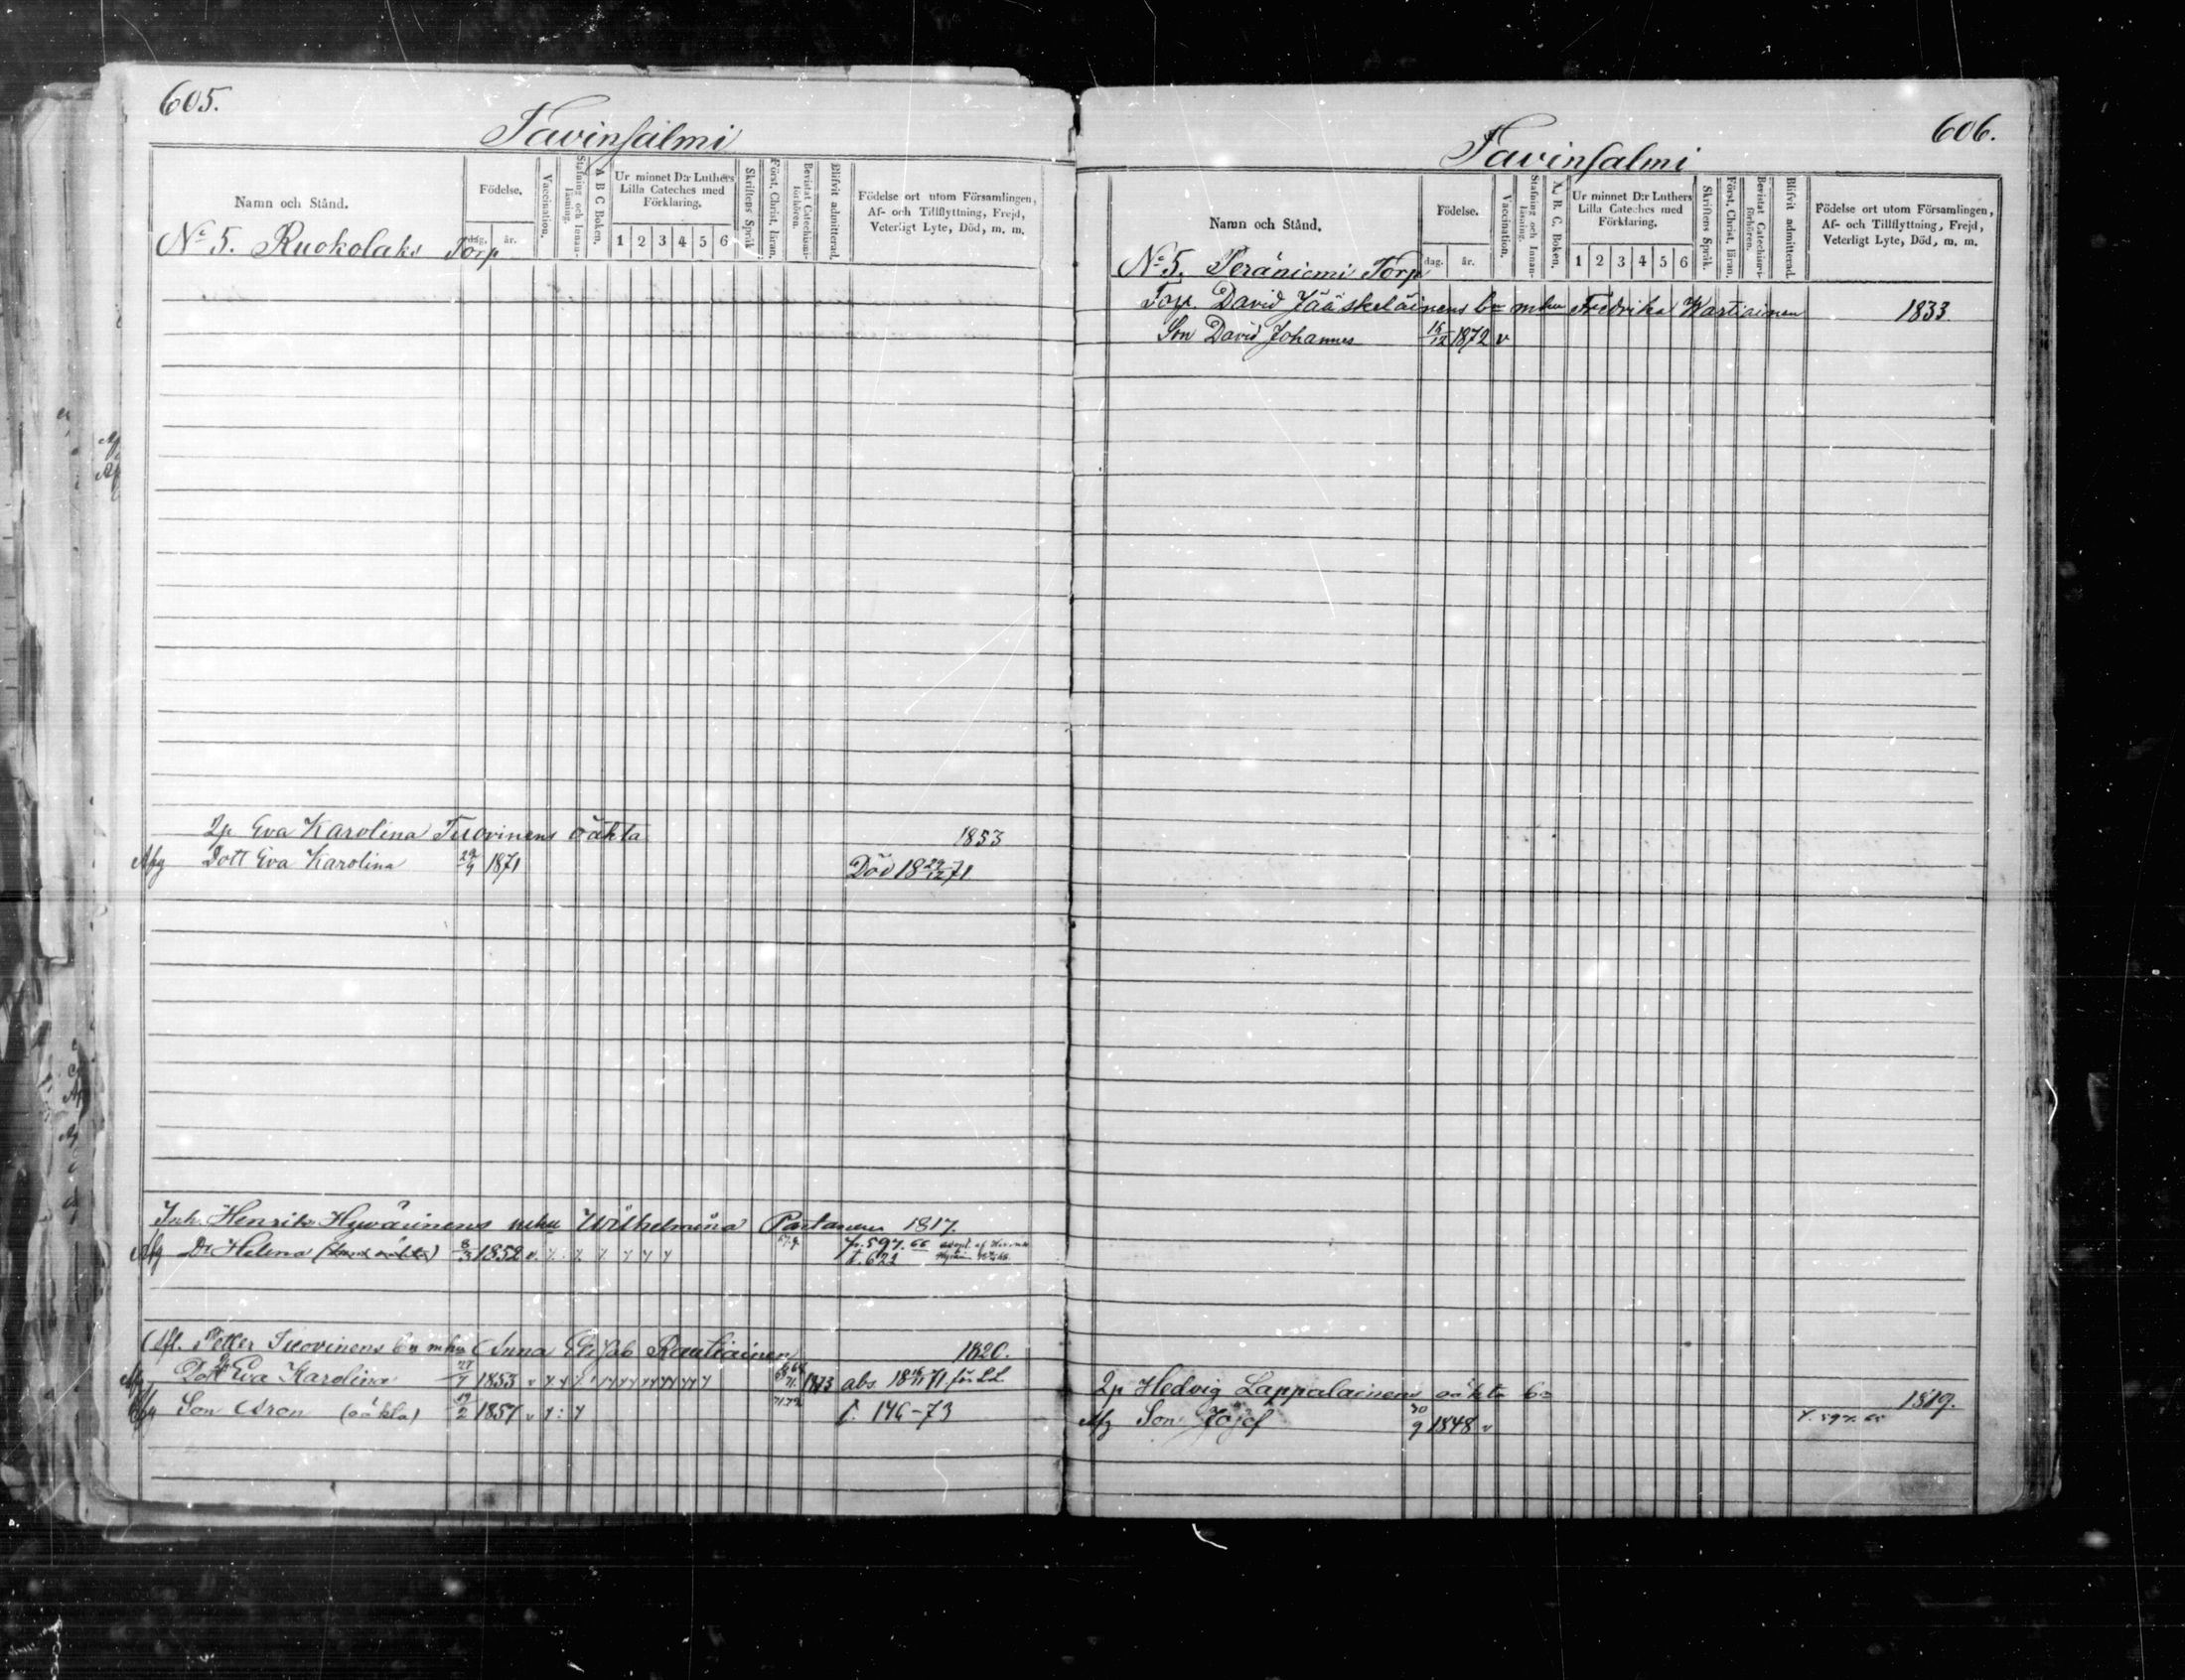 605.
Tavinsalmi
Namn och Stånd.
Födelse.
dag.
år.
Vaccination.
Stafning och Innan-läsning.
A B C Boken.
Ur minnet D:r Luthers
Lilla Cateches med
Förklaring.
1 2 3 4 5 6
Skriftens Språk
Först. Christ. läran.
Bevistat Catechismi-förhören.
Blifvit admitterad.
Födelse ort utom Församlingen,
Af- och Tillflyttning, Frejd,
Veterligt Lyte, Död, m. m.
No 5. Ruokolaks Torp
2p Eva Karolina Tuovinens oäkta 1853
Afg Dott Eva Karolina 29/9 1871 Död 18 29/12 71
Inh. Henrik Hyvärinens mhu Wilhelmina Partanen 1817.
Afg Dr Helena 8/3 1852 v. 67.9. fr. 597. 66
t. 622
Petter Tuovinens bn mhu Anna Elisab Rautiainen 1820.
Afg Dott Eva Karolina 27/7 1853 v 1873 abs. 18 /11 71
Afg Son Aron (oäkta) 19/2 1857 v 71 72 t. 146-73
606.
Tavinsalmi
Namn och Stånd.
Födelse.
dag.
år.
Vaccination.
Stafning och Innan-läsning.
A. B. C. Boken.
Ur minnet D:r Luthers
Lilla Cateches med
Förklaring.
1 2 3 4 5 6
Skriftens Språk.
Först. Christ. läran.
Bevistat Catechismi-förhören.
Blifvit admitterad.
Födelse ort utom Församlingen,
Af- och Tillflyttning, Frejd,
Veterligt Lyte, Död, m. m.
No 5. Peräniemi Torp
Torp. David Jääskeläinens bn mhu Fredrika Kartiainen 1833
Son David Johannes 16/12 1872 v
2p Hedvig Lappalainens oäkta bn 1819.
Afg Son Josef 30/9 1848 v t. 597. 65